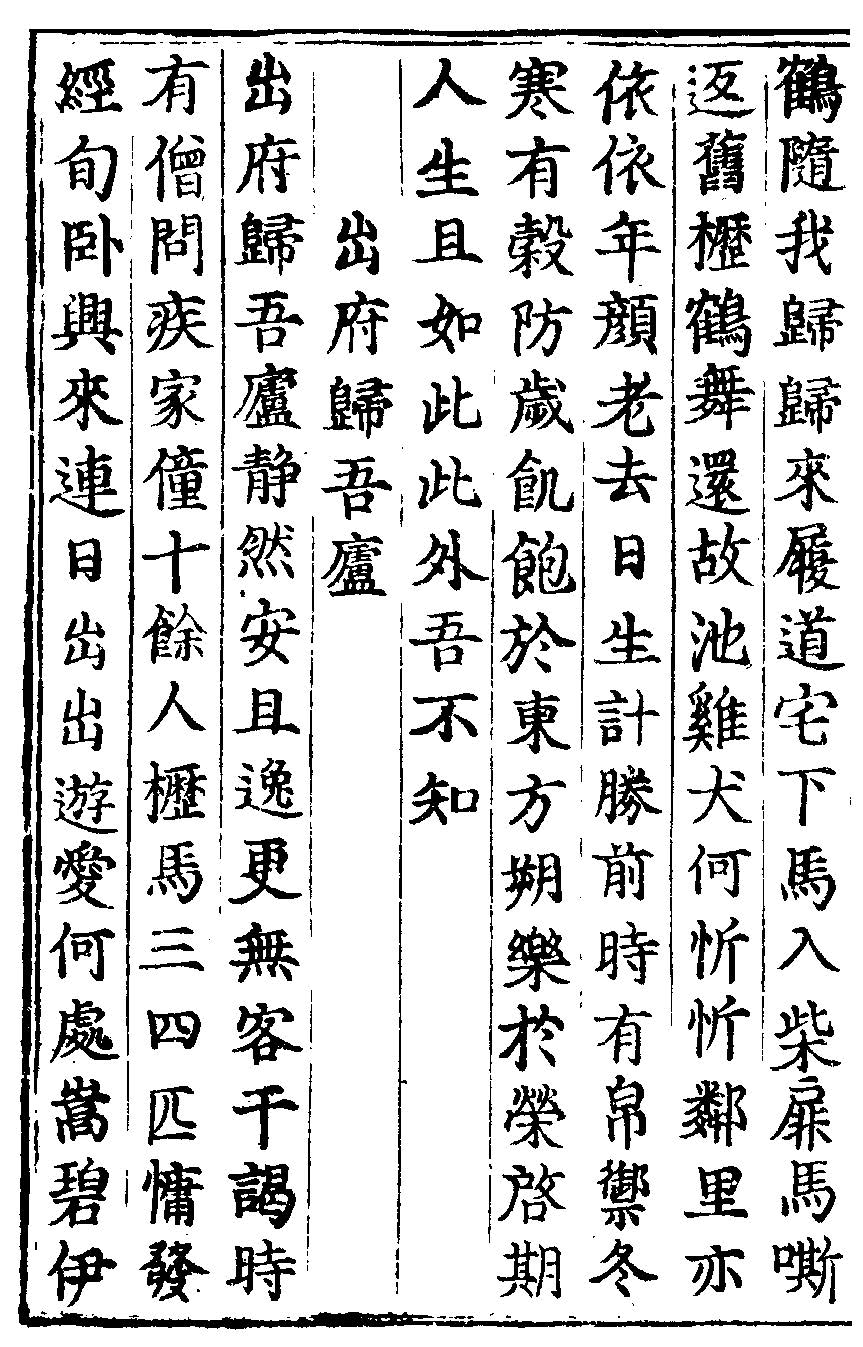 鶴隨我歸歸來履道宅下馬入柴扉馬嘶
返舊櫪鶴舞還故池雞犬何忻忻鄰里亦
依依年顏老去日生計勝前時有帛禦冬
寒有穀防歲飢飽於東方朔樂於榮啓期
人生且如此此外吾不知
出府歸吾廬
出府歸吾廬静然安且逸更無客干謁時
有僧問疾家僮十餘人櫪馬三四匹慵發
經旬卧興來連日出出遊愛何處嵩碧伊